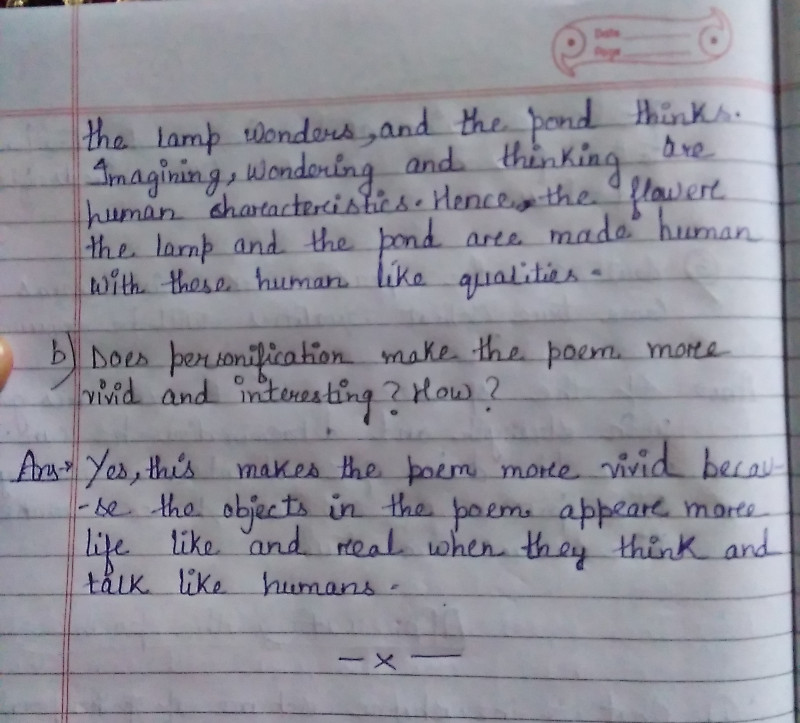 Date
Page
the lamp wonders, and the pond thinks.
Imagining, wondering and thinking are
human characteristics. Hence, the flower
the lamp and the pond are made human
with these human like qualities.
b) Does personification make the poem more
vivid and interesting? How?
Ans→ Yes, this makes the poem more vivid becau-
-se the objects in the poem appear more
life like and real when they think and
talk like humans.
— x —